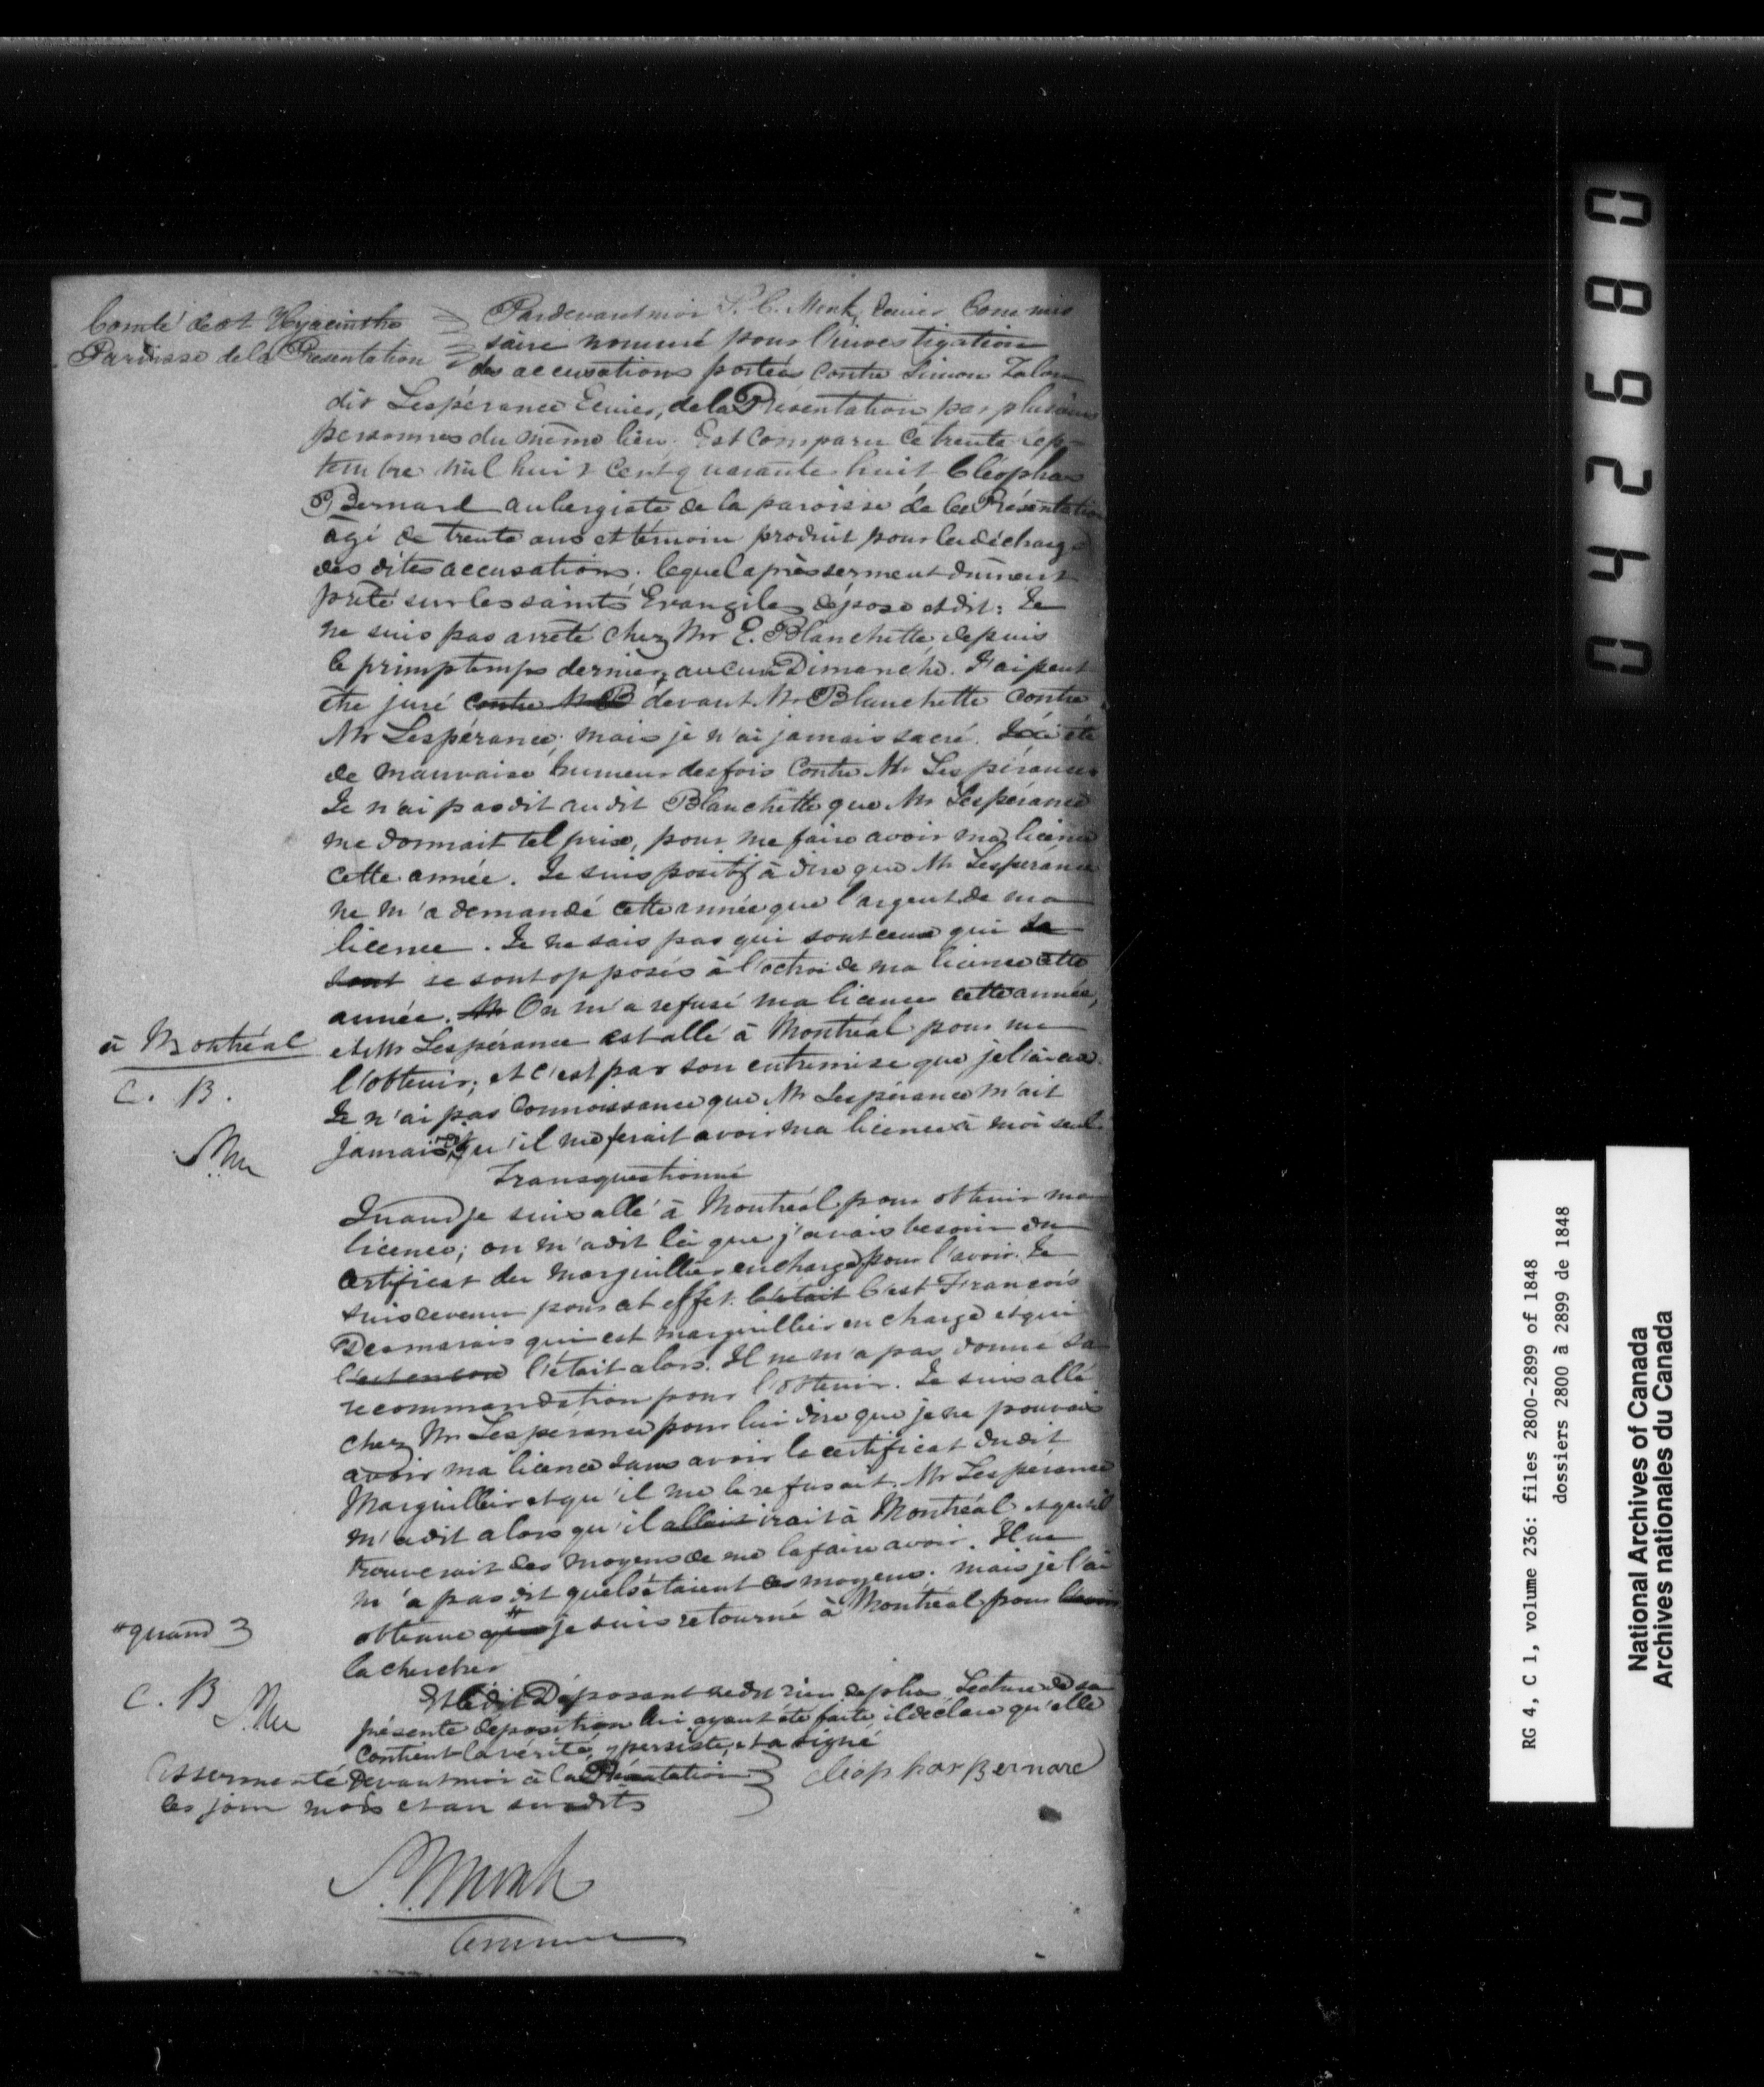 Comté de St Hyacinthe
Paroisse de la Présentation
Pardevant moi S. C. Monk, Ecuier Commis
saire nommé pour l'investigation
des accusations portées contre Simon Talon
dit Lespérance Ecuier, de la Présentation par plusieurs
personnes du même lieu. Est comparu ce trente sep-
tembre mil huit cent quarante huit, Cléophas
Bernard aubergiste de la paroisse de la Présentation
âgé de trente ans et témoin produit pour la décharge
des dites accusations; lequel après serment dûment
prêté sur les saints Evangiles dépose et dit: Je
ne suis pas arrêté chez Mr E. Blanchette, depuis
le primptemps dernier, aucun Dimanche. J'ai peut
être juré contre Mr B devant Mr Blanchette contre
Mr Lespérance; mais je n'ai jamais sacré. J'ai été
de mauvaise humeur des fois contre Mr Lespérance
Je n'ai pas dit au dit Blanchette que Mr Lespérance
me donnait tel prix, pour me faire avoir ma licence
cette année. Je suis positif à dire que Mr Lespérance
ne m'a demandé cette année que l'argent de ma
licence. Je ne sais pas qui sont ceux qui se
sont se sont opposés à l'octroi de ma licence cette
année. Mr On m'a refusé ma licence cette année,
à Montréal
et Mr Lespérance est allé à Montréal pour me
l'obtenir; et c'est par son entremise que je l'ai eue.
C. B.
Je n'ai pas connoissance que Mr Lespérance m'ait
jamais dit qu'il me ferait avoir ma licence à moi seul.
Transquestionné
Quand je suis allé à Montréal pour obtenir ma
licence; on m'a dit là que j'avais besoin du
certificat du Marguillier en charge pour l'avoir. Je
suis revenu pour cet effet. C'était C'est François
Desmarais qui est marguillier en charge et qui
l'est encore l'était alors. Il ne m'a pas donné sa
recommandation pour l'obtenir. Je suis allé
chez Mr Lespérance pour lui dire que je ne pouvais
avoir ma licence sans avoir le certificat du dit
Marguillier et qu'il me le refusait. Mr Lespérance
m'a dit alors qu'il allait irait à Montréal et qu'il
trouverait des moyens de me la faire avoir. Il ne
m'a pas dit quels étaient ces moyens. mais je l'ai
"quand
obtenue que " je suis retourné à Montréal pour l'avoir
la chercher
C. B
Et le dit Déposant ne dit rien de plus, Lecture de sa
présente déposition lui ayant été faite il déclare qu'elle
contient la vérité, y persiste, et a signé
Assermenté devant moi à la Présentation
les jour mois et an susdits
Cléophas Bernard
S. C. Monk
0 4 2 6 8 0
RG 4, C 1, volume 236: files 2800-2899 of 1848
dossiers 2800 à 2899 de 1848
National Archives of Canada
Archives nationales du Canada